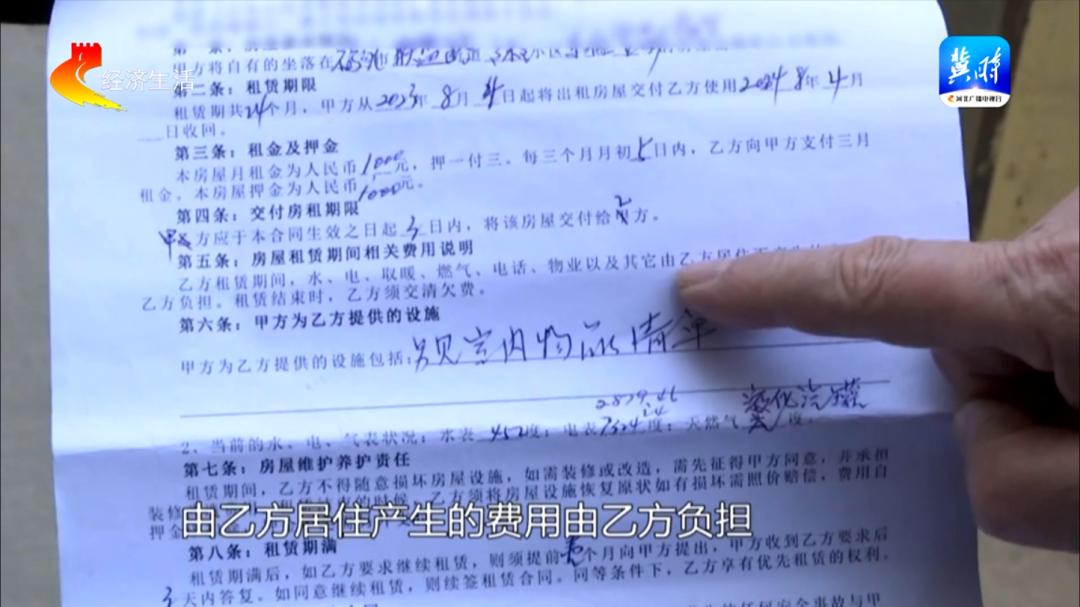 经济生活
冀时
河北广播电视台
甲方将自有的坐落在
第二条：租赁期限
租赁期共24个月，甲方从2023年8月4日起将出租房屋交付乙方使用2024年8年4月
日收回。
第三条：租金及押金
本房屋月租金为人民币1000元，押一付三。每三个月月初5日内，乙方向甲方支付三月
租金。本房屋押金为人民币1000元。
第四条：交付房租期限
甲方应于本合同生效之日起3日内，将该房屋交付给乙方。
第五条：房屋租赁期间相关费用说明
乙方租赁期间，水、电、取暖、燃气、电话、物业以及其它由乙方居住
乙方负担。租赁结束时，乙方须交清欠费。
第六条：甲方为乙方提供的设施
甲方为乙方提供的设施包括：另见室内物品清单
2、当前的水、电、气表状况：水表452度；电表7324度；天然气 度。
液化汽罐
第七条：房屋维护养护责任
租赁期间，乙方不得随意损坏房屋设施，如需装修或改造，需先征得甲方同意，并承担
乙方须将房屋设施恢复原状如有损坏需照价赔偿，费用自
装修
押金
由乙方居住产生的费用由乙方负担
第八条：租赁期满
租赁期满后，如乙方要求继续租赁，则须提前 个月向甲方提出，甲方收到乙方要求后
3天内答复。如同意继续租赁，则续签租赁合同。同等条件下，乙方享有优先租赁的权利。